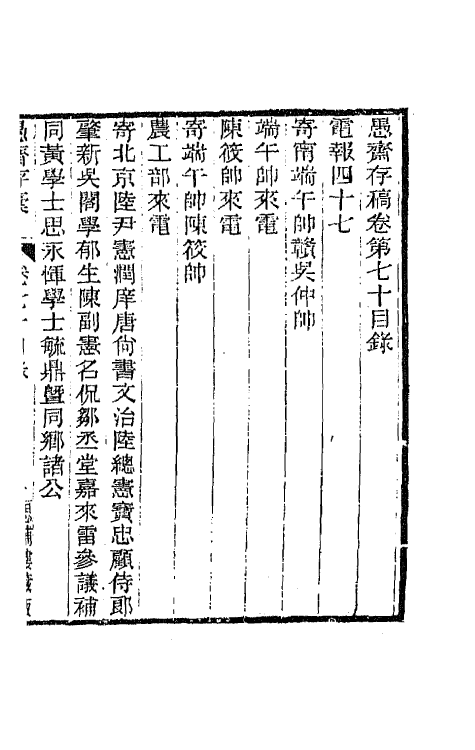 愚齋存稿卷第七十目錄
電報四十七
寄甯端午帥贛吳仲帥
端午帥來電
陳筱帥來電
寄端午帥陳筱帥
農工部來電
寄北京陸尹憲潤庠唐尙書文治陸總憲寶忠顧侍郎
肇新吳閣學郁生陳副憲名侃鄒丞堂嘉來雷參議補
同黃學士思永惲學士毓鼎曁同鄉諸公
愚齋存稾
卷七十目錄
一
思補樓藏版